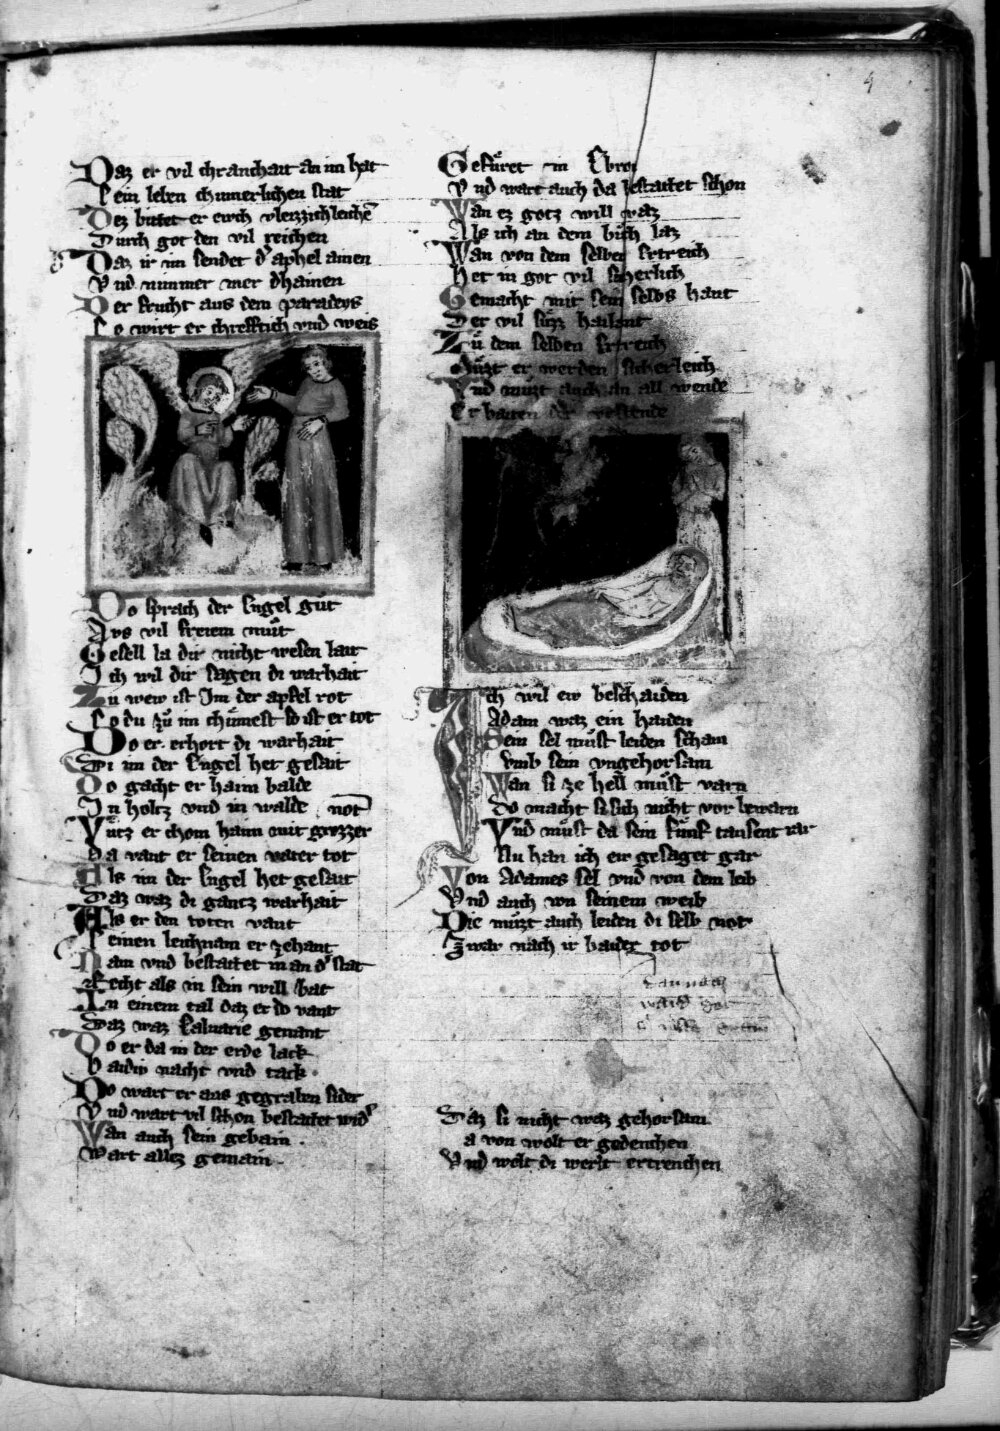 Daz er vil chranchait an im hat
Sein leben chumerlichen stat
Dez bittet er ewch vleizzichleichē
Durch got den vil reichen
Daz ir im sendet dˢ aphel ainen
Vnd nimmer mer dhainen
Der frucht aus dem paradeys
So wirt er chrefftich vnd weis
Do sprach der Engel gůt
Aus vil freiem můt
Gesell la dir nicht wesen lait
Ich wil dir sagen di warhait
Zu wew ist Im der apfel rot
So du zů im chůmest so ist er tot
Do er erhort di warhait
Di im der Engel het gesait
Do gacht er haim balde
In holtz vnd in walde not
Vntz er chom haim mit grozzer
Da vant er seinen vater tot
Als im der Engel het gesait
Daz waz di gantz warhait
Als er den toten vant
Seinen leichnam er zehant
Nam vnd bestattet in an dˢ stat
Recht als in sein will bat
In einem tal daz er do vant
Daz waz Caluarie genant
Do er da in der erde lack
Baidiv nacht vnd tack
Do wart er aus gegraben sider
Vnd wart vil schon bestattet widˢ
Wan auch sein gebain
Wart allez gemain
4
Gefůret in Ebron
Vnd wart auch da bestattet schon
Wan ez gotz will waz
Als ich an dem bůch laz
Wan von dem selben Ertreich
Het in got vil sicherlich
Gemacht mit sein selbs hant
Der vil sůzz hailant
Zů dem selben Ertreich
Můzt er werden sicherleich
Vnd můzt auch an all wende
Er haiten der vrstende
Ich wil ew beschaiden
Adam waz ein haiden
Sein sel můst leiden scham
Vmb sein vngehorsam
Wan si ze hell můst varn
Do macht si sich nicht vor bewarn
Vnd můst da sein fůnf tausent iar
Nu han ich ew gesaget gar
Von Adames sel vnd von dem leib
Vnd auch von seinem weib
Die můzt auch leiden di selb not
Zwar nach ir baider tot
Daz si nicht waz gehorsam
a von wolt er gedenchen
Vnd wolt di werlt ertrenchen